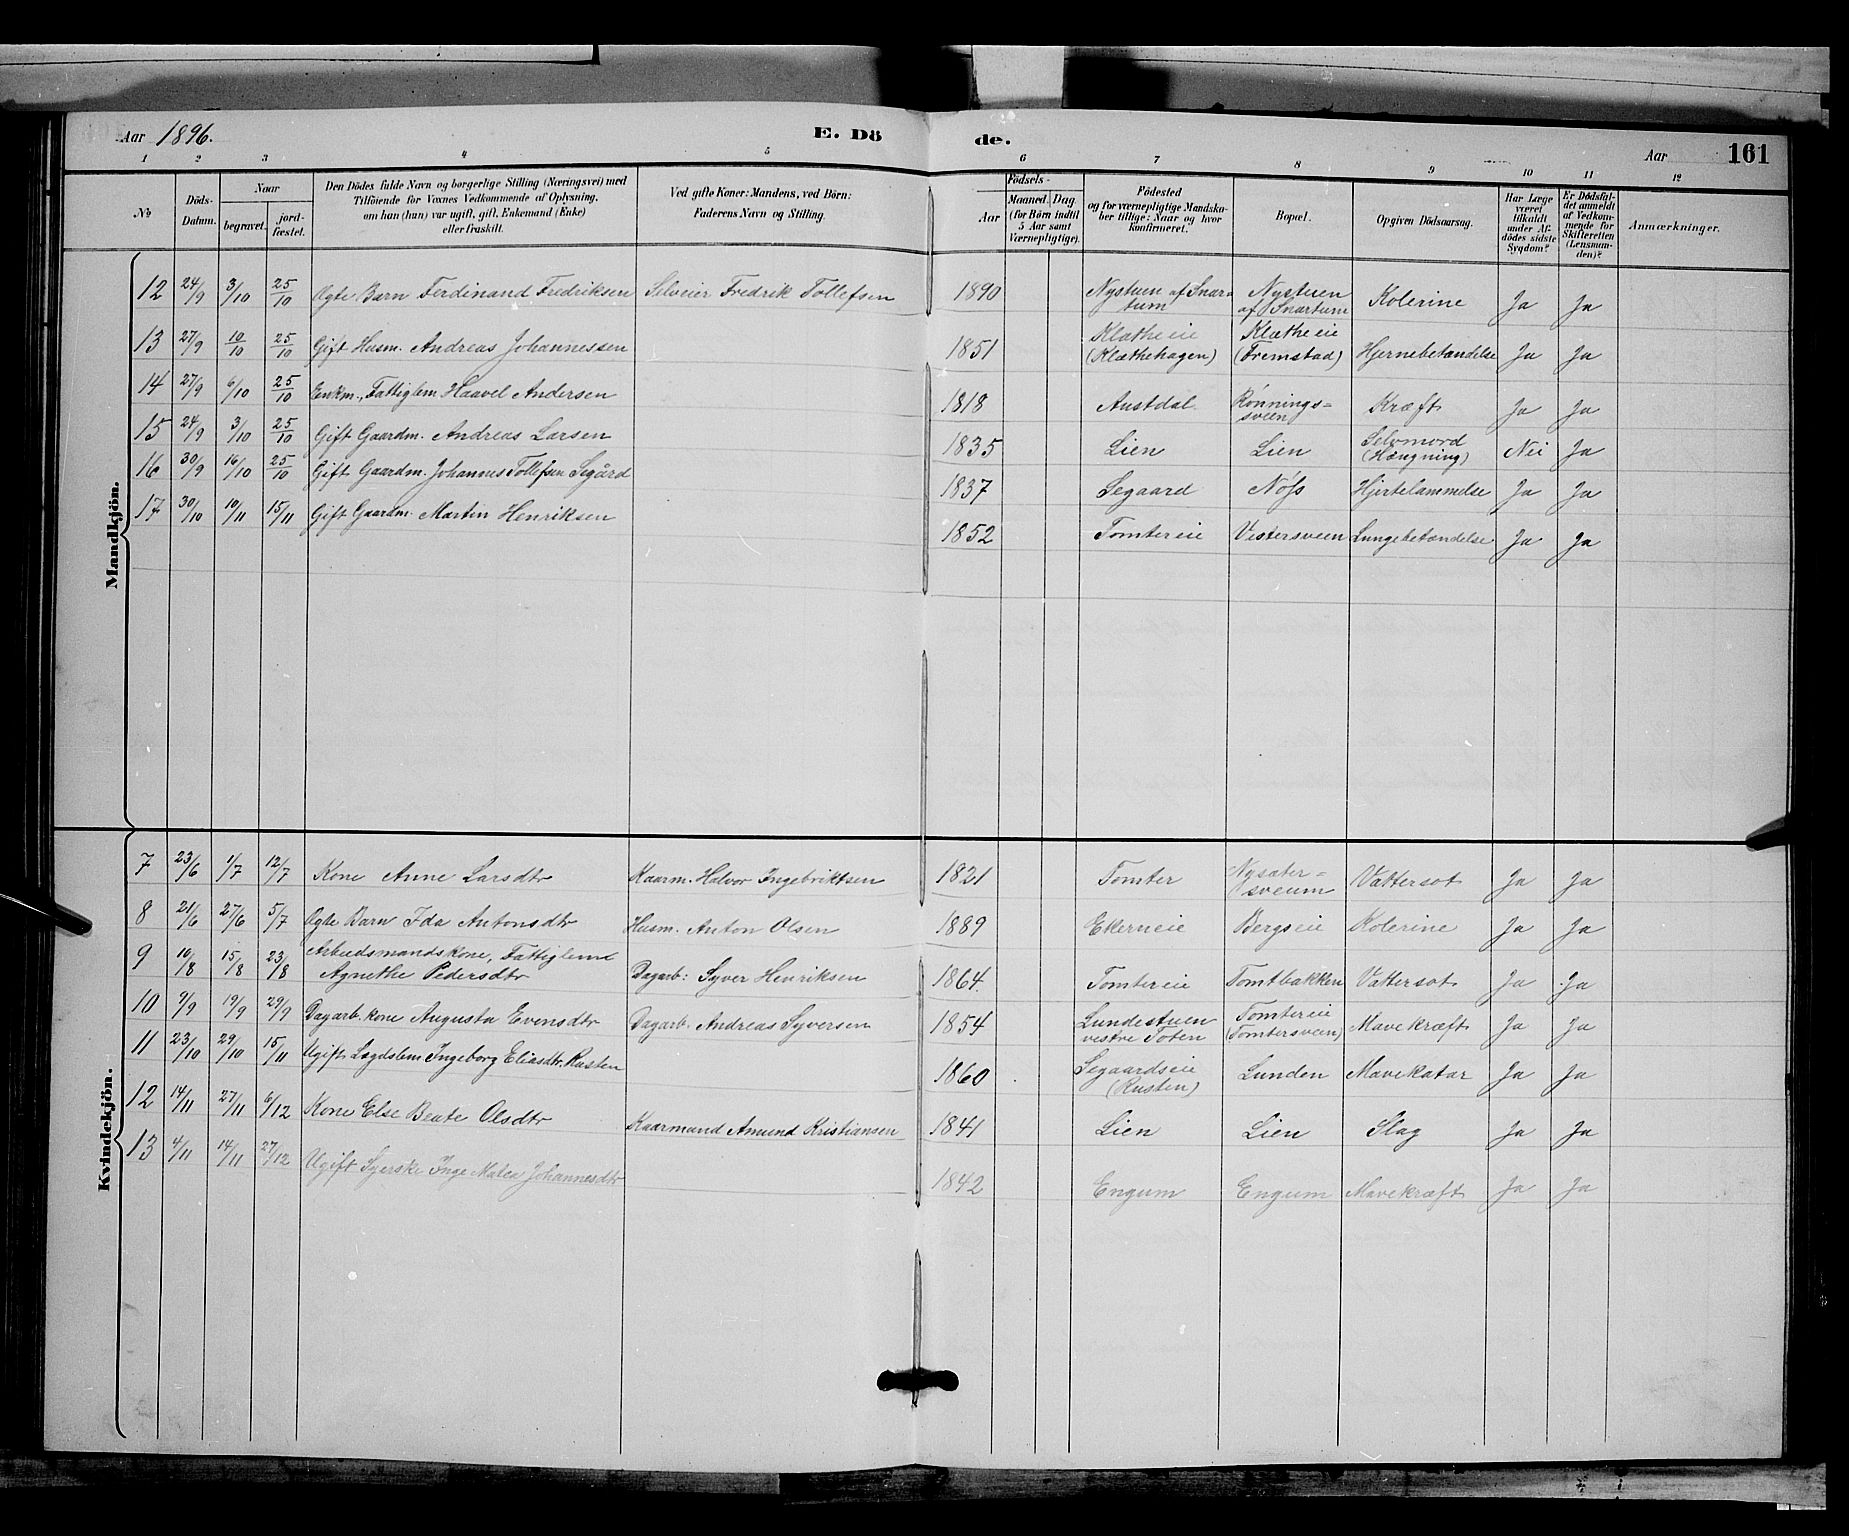 Aar 1896. E. Dö de. Aar 161
1 2 3 4 5 6 7 8 9 10 11 12
No
Döds-Datum.
Naar
begravet.
jord-fæstet.
Den Dödes fulde Navn og borgerlige Stilling (Næringsvei) med
Tilföiende for Voxnes Vedkommende af Oplysning,
om han (hun) var ugift, gift, Enkemand (Enke)
eller fraskilt.
Ved gifte Koner: Mandens, ved Börn:
Faderens Navn og Stilling.
Födsels-
Aar
Maaned. Dag.
(for Börn indtil
5 Aar samt
Værnepligtige).
Födested
og for værnepligtige Mandska-
ber tillige: Naar og hvor
konfirmeret.
Bopæl.
Opgiven Dödsaarsag.
Har Læge
været
tilkaldt
under Af-
dödes sidste
Sygdom?
Er Dödsfal-
det anmeldt
af Vedkom-
mende for
Skifteretten
(Lensman-
den)?
Anmærkninger.
Mandkjön.
12 24/9 3/10 25/10 Ægte Barn Ferdinand Fredriksen Selveier Fredrik Tollefsen 1890 Nystuen af Snar-tum Nystuen af Snartum Kolerine Ja Ja
13 27/9 10/10 25/10 Gift Husm. Andreas Johannessen 1851 Klætheeie (Klæthehagen) Klætheeie (Fremstad) Hjernebetændelse Ja Ja
14 27/9 6/10 25/10 Enkm., Fattiglem Haavel Andersen 1818 Austdal Rønnings=sveen Kræft Ja Ja
15 24/9 3/10 25/10 Gift Gaardm. Andreas Larsen 1835 Lien Lien Selvmord (Hængning) Nei Ja
16 30/9 16/10 25/10 Gift Gaardm. Johannes Tollefsen Segård 1837 Segaard Nøss Hjertelammelse Ja Ja
17 30/10 10/11 15/11 Gift Gaardm. Martin Henriksen 1852 Tomtereie Vestersveen Lungebetændelse Ja Ja
Kvindekjön.
7 23/6 1/7 12/7 Kone Anne Larsdtr Kaarm. Halvor Ingebriktsen 1821 Tomter Nysæter=sveum Vattersot Ja Ja
8 21/6 27/6 5/7 Ægte Barn Ida Antonsdtr Husm. Anton Olsen 1889 Ekerneie Bergseie Kolerine Ja Ja
9 10/8 15/8 23/8 Arbeidsmandskone, Fattiglem Agnethe Pedersdtr Dagarb: Syver Henriksen 1864 Tomtereie Tomtbakken Vattersot Ja Ja
10 9/9 19/9 29/9 Dagarb. kone Augusta Evensdtr Dagarb. Andreas Syversen 1854 Lundestuen vestre Toten Tomtereie (Tomtersveen) Mavekræft Ja Ja
11 23/10 29/10 15/11 Ugift Lægdslem Ingeborg Eliasdtr. Rusten 1860 Segaardseie (Rusten) Lunden Mavekatar Ja Ja
12 14/11 27/11 6/12 Kone Else Beate Olsdtr Kaarmand Amund Kristiansen 1841 Lien Lien Slag Ja Ja
13 4/11 14/11 27/12 Ugift Syerske Inge Malea Johannesdtr 1842 Engum Engum Mavekræft Ja Ja